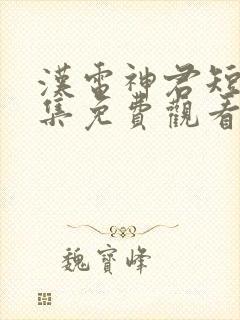 漢雷神君短
集免費觀看
魏寶峰